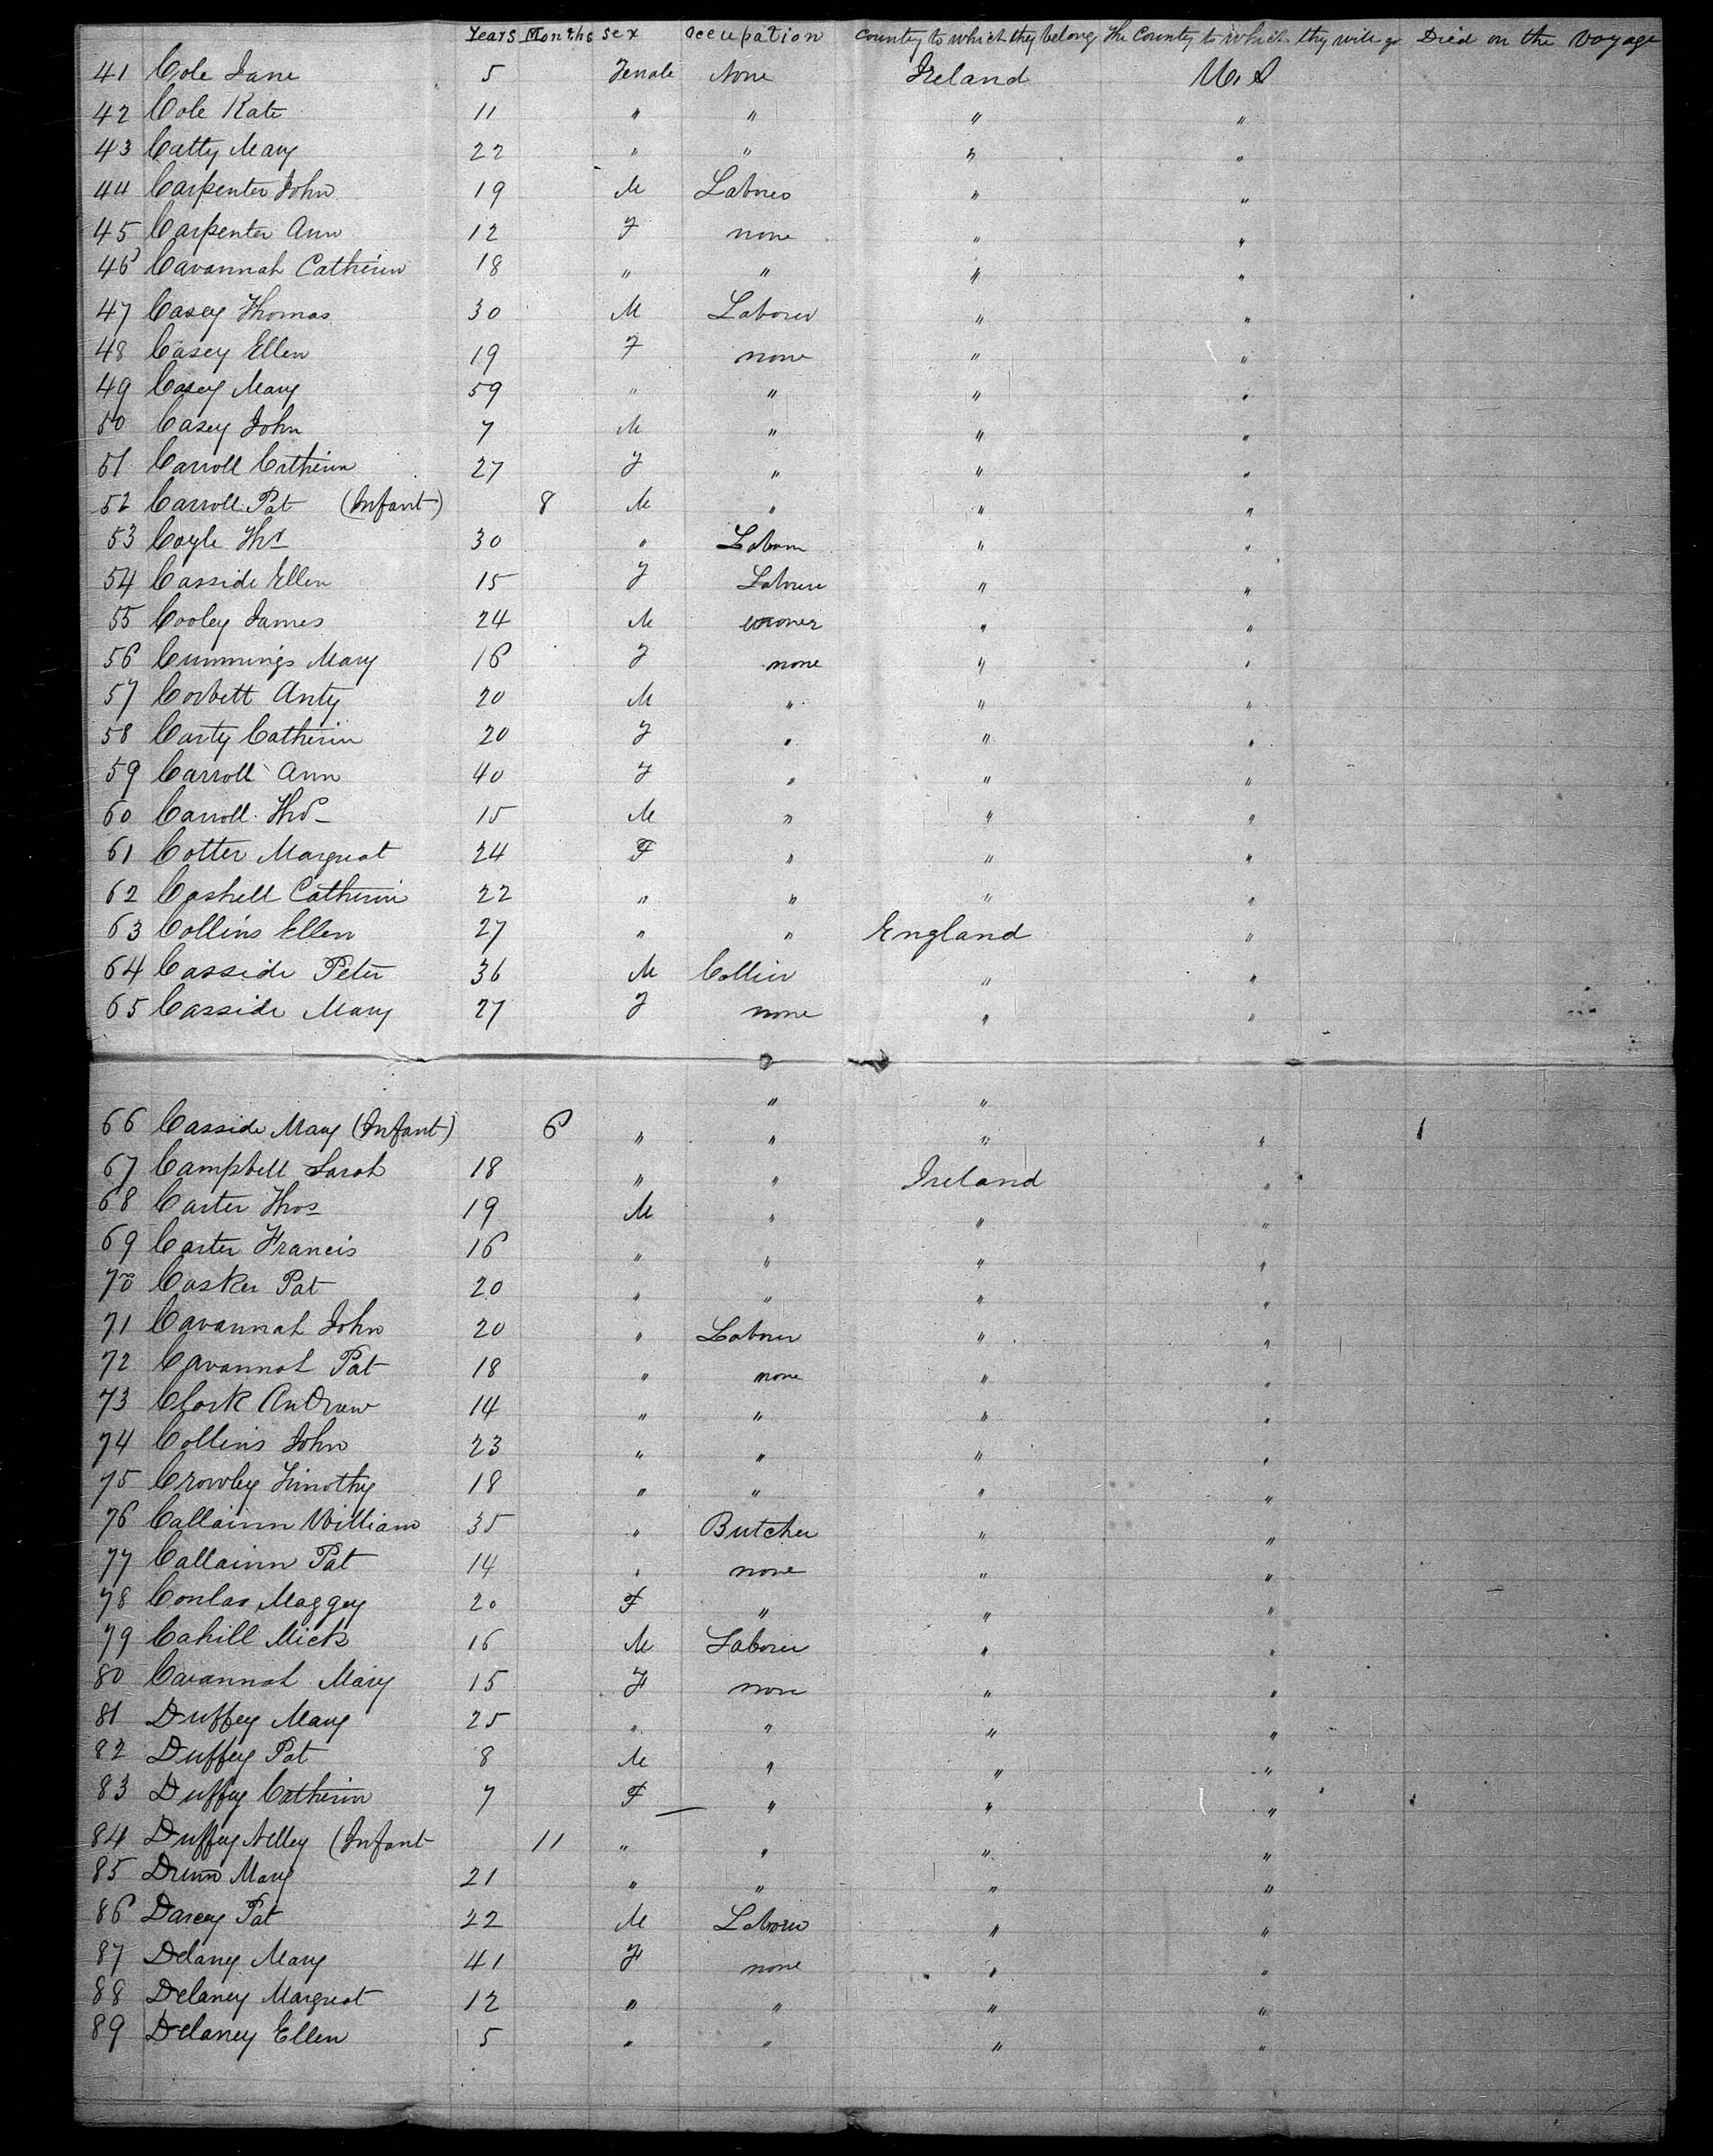 Years Months Sex Occupation Country to which they belong The Country to which they will go Died on the Voyage
41 Cole Jane 5 Female None Ireland U. S
42 Cole Kate 11 " " " "
43 Catty Mary 22 " " " "
44 Carpenter John 19 M Laborer " "
45 Carpenter Ann 12 F none " "
46 Cavannah Catherin 18 " " " "
47 Casey Thomas 30 M Laborer " "
48 Casey Ellen 19 F none " "
49 Casey Mary 59 " " " "
50 Casey John 7 M " " "
51 Carroll Catherin 27 F " " "
52 Carroll Pat (Infant) 8 M " " "
53 Coyle Thos 30 " Laborer " "
54 Casside Ellen 15 F Laborer " "
55 Cooley James 24 M " "
56 Cummings Mary 16 F none " "
57 Corbett Anty 20 M " " "
58 Carty Catherin 20 F " " "
59 Carroll Ann 40 F " " "
60 Carroll Thos 15 M " " "
61 Cotter Margreat 24 F " " "
62 Cashell Catherin 22 " " " "
63 Collins Ellen 27 " " England "
64 Casside Peter 36 M Collier " "
65 Casside Mary 27 F none " "
" "
66 Casside Mary (Infant) 6 " " " " 1
67 Campbell Sarah 18 " " Ireland "
68 Carter Thos 19 M " " "
69 Carter Francis 16 " " " "
70 Casker Pat 20 " " " "
71 Cavannah John 20 " Laborer " "
72 Cavannah Pat 18 " none " "
73 Clark Andrew 14 " " " "
74 Collins John 23 " " " "
75 Crowley Timothy 18 " " " "
76 Callainn William 35 " Butcher " "
77 Callainn Pat 14 " none " "
78 Conlan Maggey 20 F " " "
79 Cahill Mick 16 M Laborer " "
80 Cavannah Mary 15 F none " "
81 Duffey Mary 25 " " " "
82 Duffey Pat 8 M " " "
83 Duffey Catherin 7 F " " "
84 Duffey Nelley (Infant 11 " " " "
85 Mary 21 " " " "
86 Darcey Pat 22 M Laborer " "
87 Delaney Mary 41 F none " "
88 Delaney Margreat 12 " " " "
89 Delaney Ellen 5 " " " "